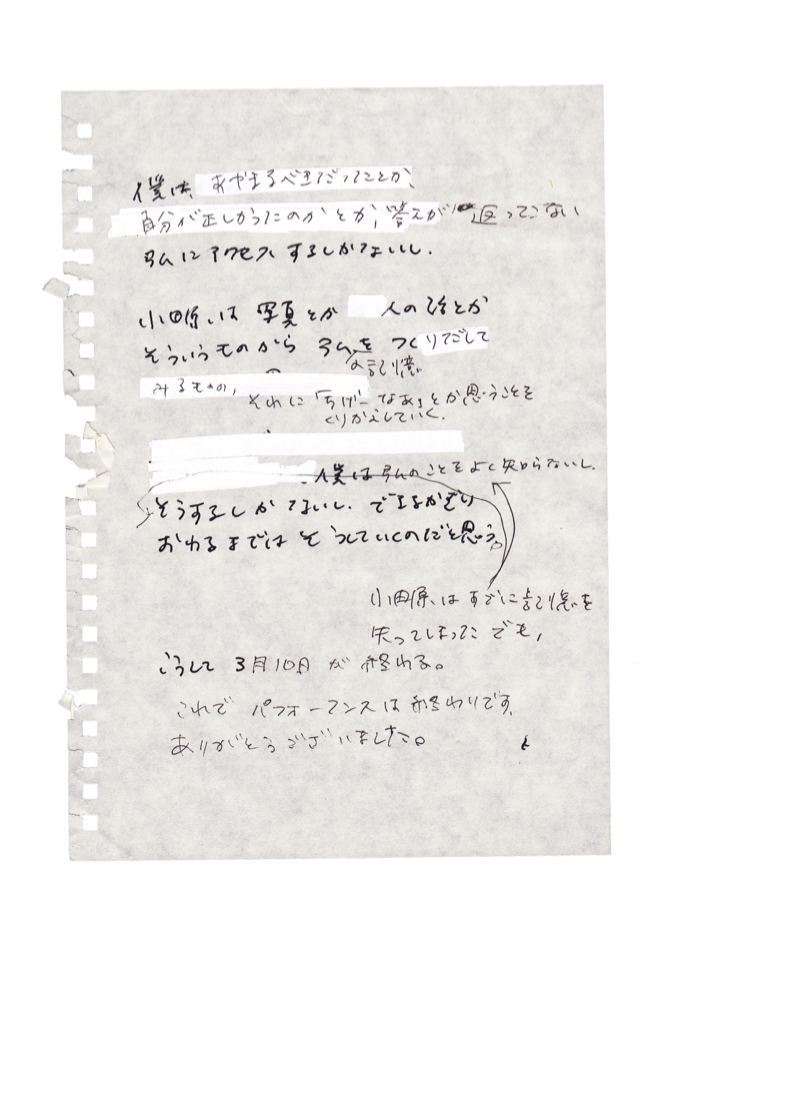 僕は、あやまるべきだってことか、
自分が正しかったのかとか、答えが返ってこない
ラムにアクセスするしかないし。
小田原は写真とか 人の話とか
そういうものから ラムをつくりだして
の記憶
みるものの、
それに「ちげーなあ」とか思うことを
くりかえしていく。
僕はラムのことをよく知らないし、
そうするしかないし、できるかぎり
おわるまではそうしていくのだと思う。
小田原はすでに記憶を
失ってしまった でも、
こうして3月10日が終わる。
これでパフォーマンスは終わりです。
ありがとうございました。